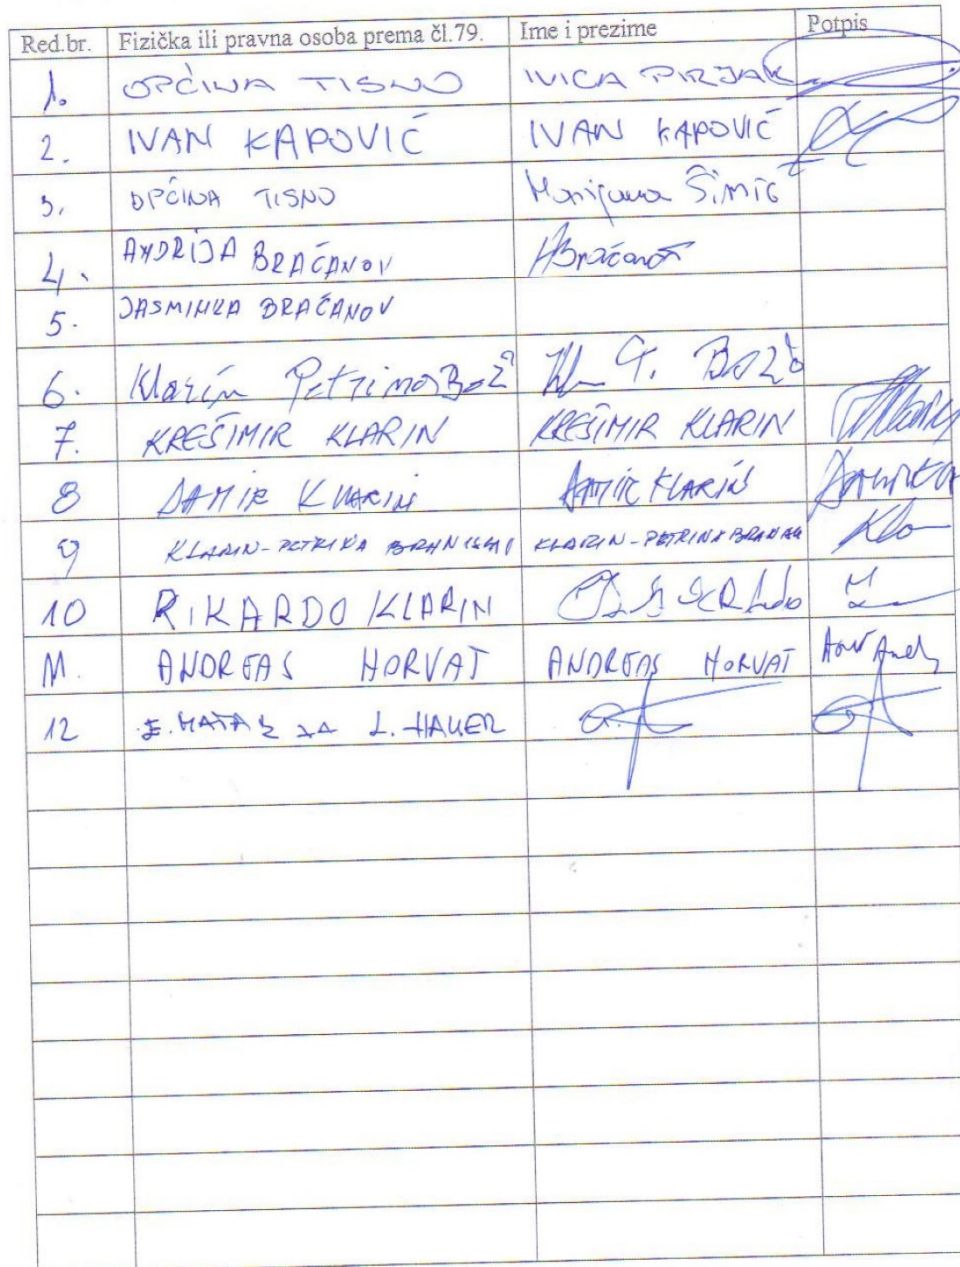 Red.br. Fizička ili pravna osoba prema čl.79. Ime i prezime Potpis
1. OPĆINA TISNO IVICA PIRJAK
2. IVAN KAPOVIĆ IVAN KAPOVIĆ
3. OPĆINA TISNO Marijana Šimić
4. ANDRIJA BRAČANOV ABračanov
5. JASMINKA BRAČANOV
6. Klarin Petrina Bož
7. KREŠIMIR KLARIN KREŠIMIR KLARIN
8 DAMIR KLARIN DAMIR KLARIN
9 KLARIN-PETRINA BRANISLAV KLARIN-PETRINA
10 RIKARDO KLARIN
11. ANDREAS HORVAT ANDREAS HORVAT
12 L. HAUER